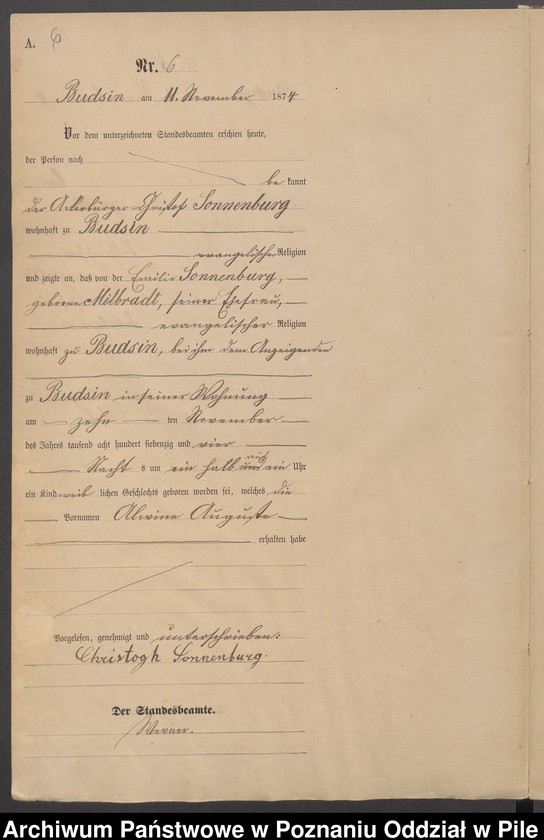 A. 6
Nr. 6
Budsin am 11. November 1874
Vor dem unterzeichneten Standesbeamten erschien heute,
der Person nach
be kannt
der Ackerbürger Christof Sonnenburg
wohnhaft zu Budsin
evangelischer Religion
und zeigte an, daß von der Emilie Sonnenburg,
geborene Milbradt, seiner Ehefrau,
evangelischer Religion
wohnhaft zu Budsin, bei ihm dem Anzeigenden
zu Budsin in seiner Wohnung
am zehn ten November
des Jahres tausend acht hundert siebenzig und vier
Nacht s um ein halb und ein Uhr
ein Kind weib lichen Geschlechts geboren worden sei, welches die
Vornamen Alwine Auguste
erhalten habe
Vorgelesen, genehmigt und unterschrieben:
Christogh Sonnenburg.
Der Standesbeamte.
Werner.
Archiwum Państwowe w Poznaniu Oddział w Pile